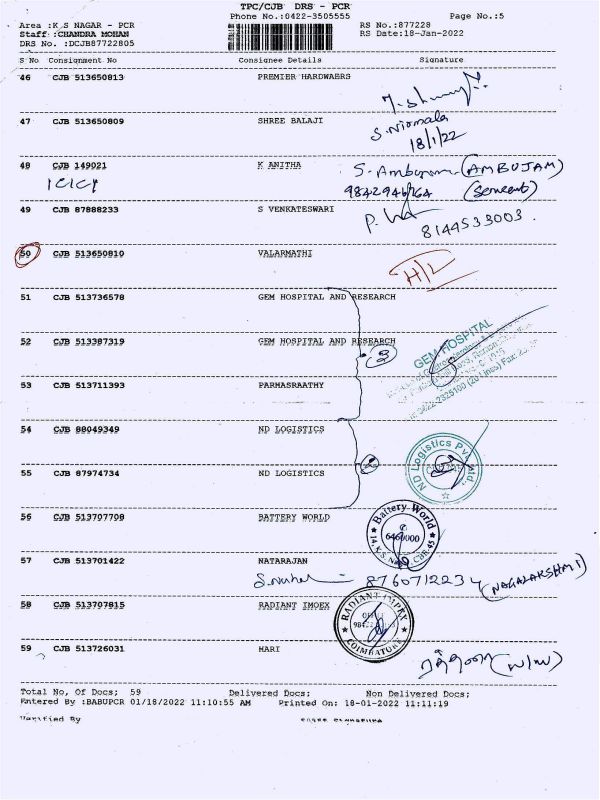 TPC/CJB DRS - PCR
Phone No.:0422-3505555 Page No.:5
Area :K S NAGAR - PCR RS No.:877228
Staff :CHANDRA MOHAN RS Date:18-Jan-2022
DRS No. :DCJB87722805
S No Consignment No Consignee Details Signature
46 CJB 513650813 PREMIER HARDWAERS
47 CJB 513650809 SHREE BALAJI S. Nirmala
18/1/22
48 CJB 149021 K ANITHA S. Ambujam (AMBUJAM)
ICICI 9842946764
49 CJB 87888233 S VENKATESWARI
8144533003.
50 CJB 513650810 VALARMATHI H/L
51 CJB 513736578 GEM HOSPITAL AND RESEARCH
52 CJB 513387319 GEM HOSPITAL AND RESEARCH 3
GEM HOSPITAL
53 CJB 513711393 PARMASRAATHY
54 CJB 88049349 ND LOGISTICS
ND Logistics Pvt. Ltd.
55 CJB 87974734 ND LOGISTICS 2
56 CJB 513707708 BATTERY WORLD
Battery World
57 CJB 513701422 NATARAJAN
8760712234 (NAGALAKSHMI)
58 CJB 513707815 RADIANT IMOEX
RADIANT IMPEX
COIMBATORE
59 CJB 513726031 HARI (W/W)
Total No, Of Docs; 59 Delivered Docs: Non Delivered Docs;
Entered By :BABUPCR 01/18/2022 11:10:55 AM Printed On: 18-01-2022 11:11:19
Varified By